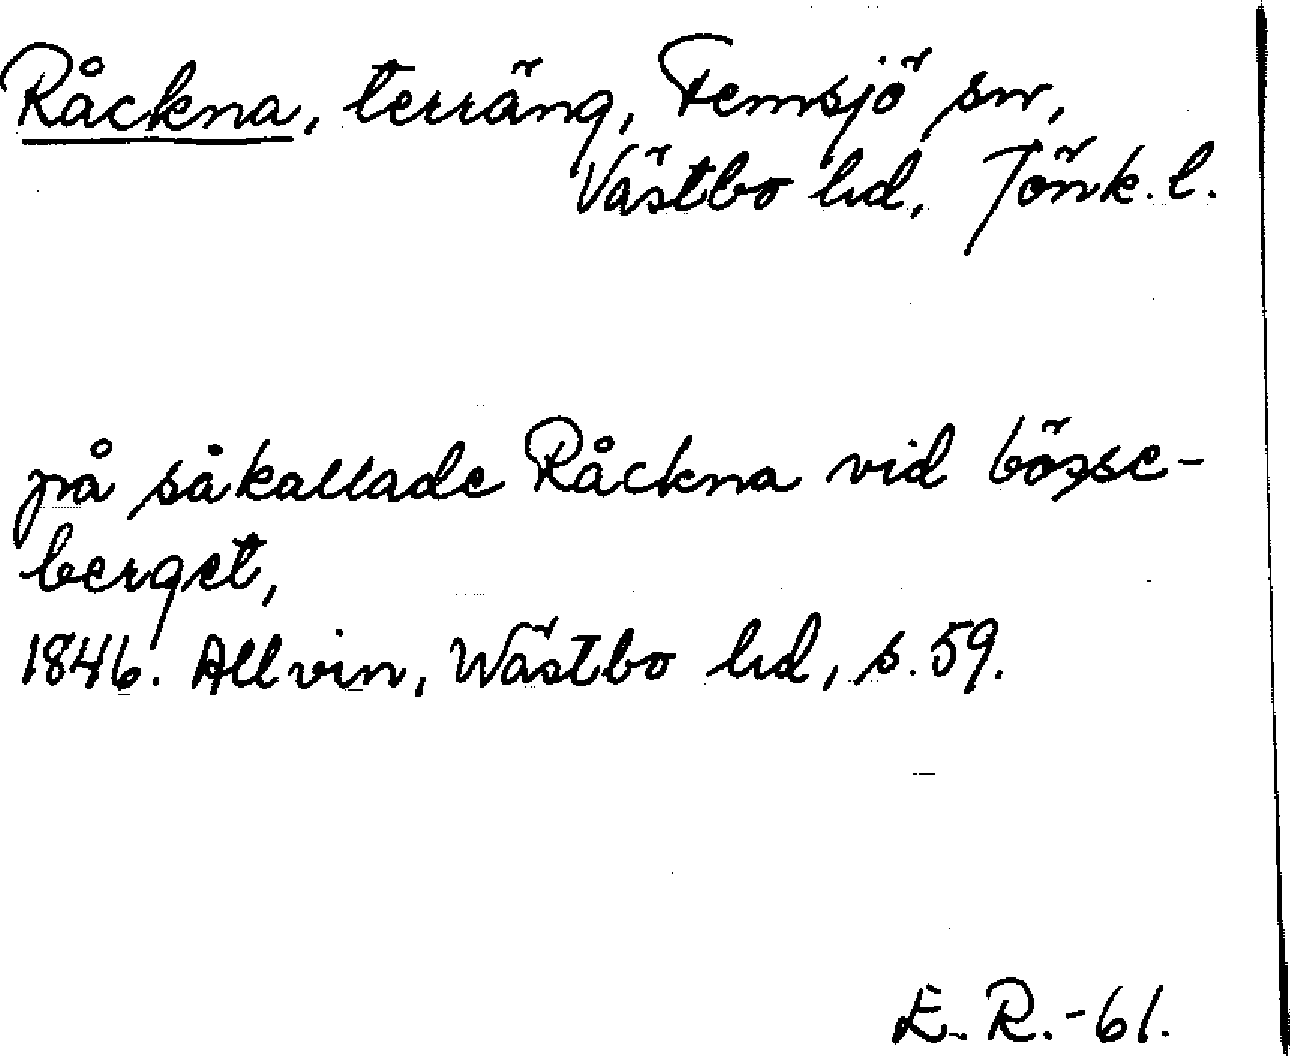 Råckna, terräng, Femsjö sn,
Västbo hd, Jönk. l.
på såkallade Råckna vid bösse-
berget,
1846. Allvin, Wästbo hd, s. 59.
E. R. -61.